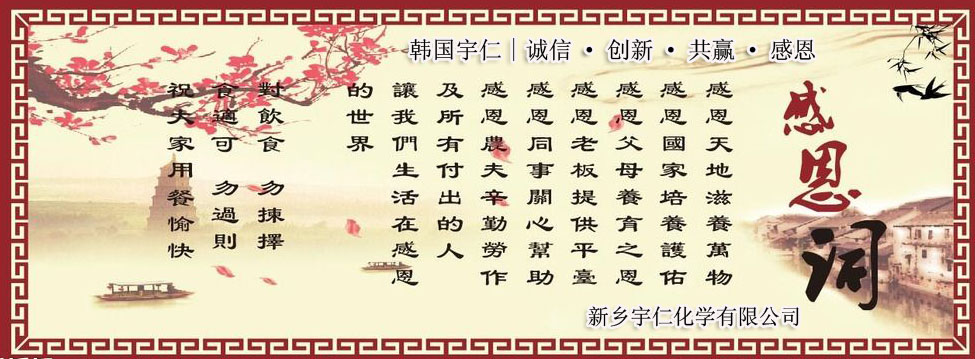 韩国宇仁｜诚信·创新·共赢·感恩
感恩词
感恩天地滋養萬物
感恩國家培養護佑
感恩父母養育之恩
感恩老板提供平臺
感恩同事關心幫助
感恩農夫辛勤勞作
及所有付出的人
讓我們生活在感恩
的世界
對飲食 勿揀擇
食適可 勿過則
祝大家用餐愉快
新乡宇仁化学有限公司